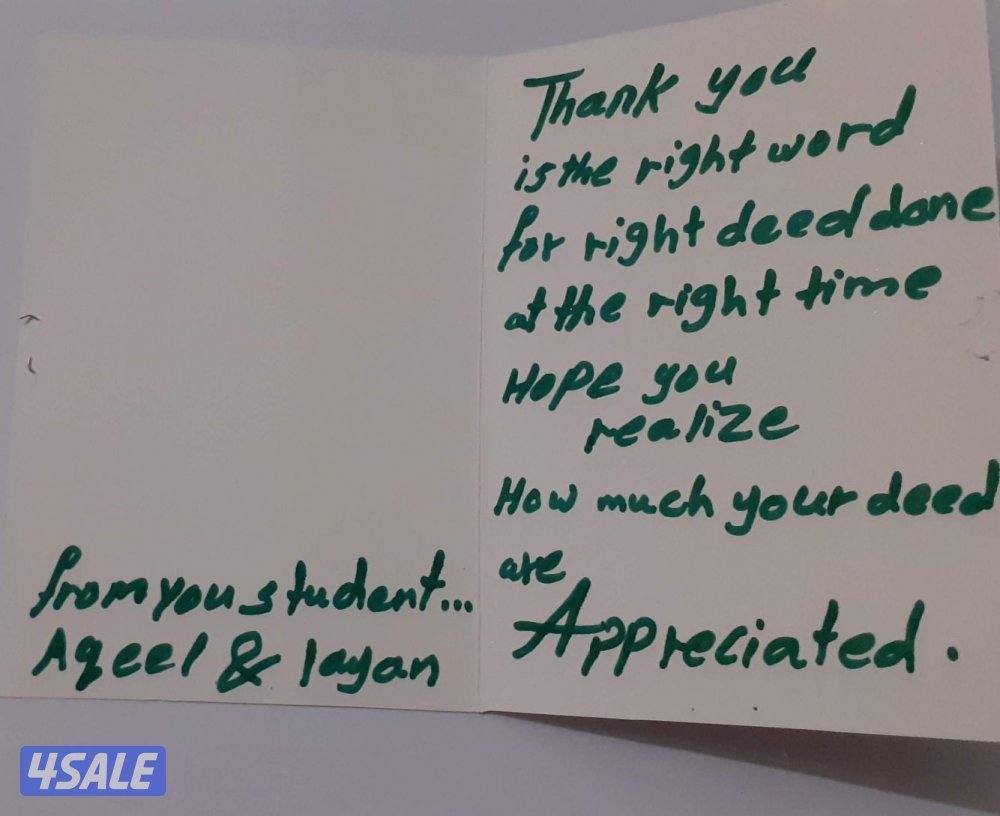 from you student...
Aqeel & layan
Thank you
is the right word
for right deed done
at the right time
Hope you
realize
How much your deed
are
Appreciated.
4SALE